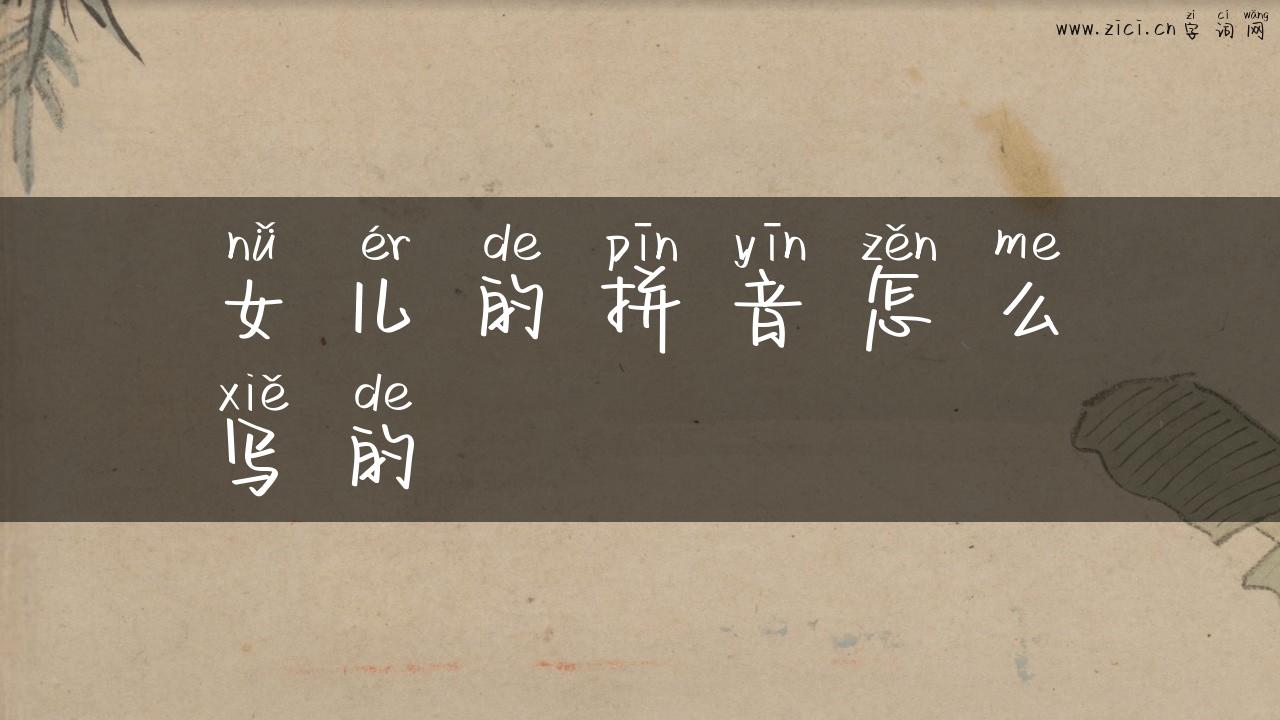 zì cí wǎng
www.zici.cn 字 词 网
nǚ ér de pīn yīn zěn me
女 儿 的 拼 音 怎 么
xiě de
写 的